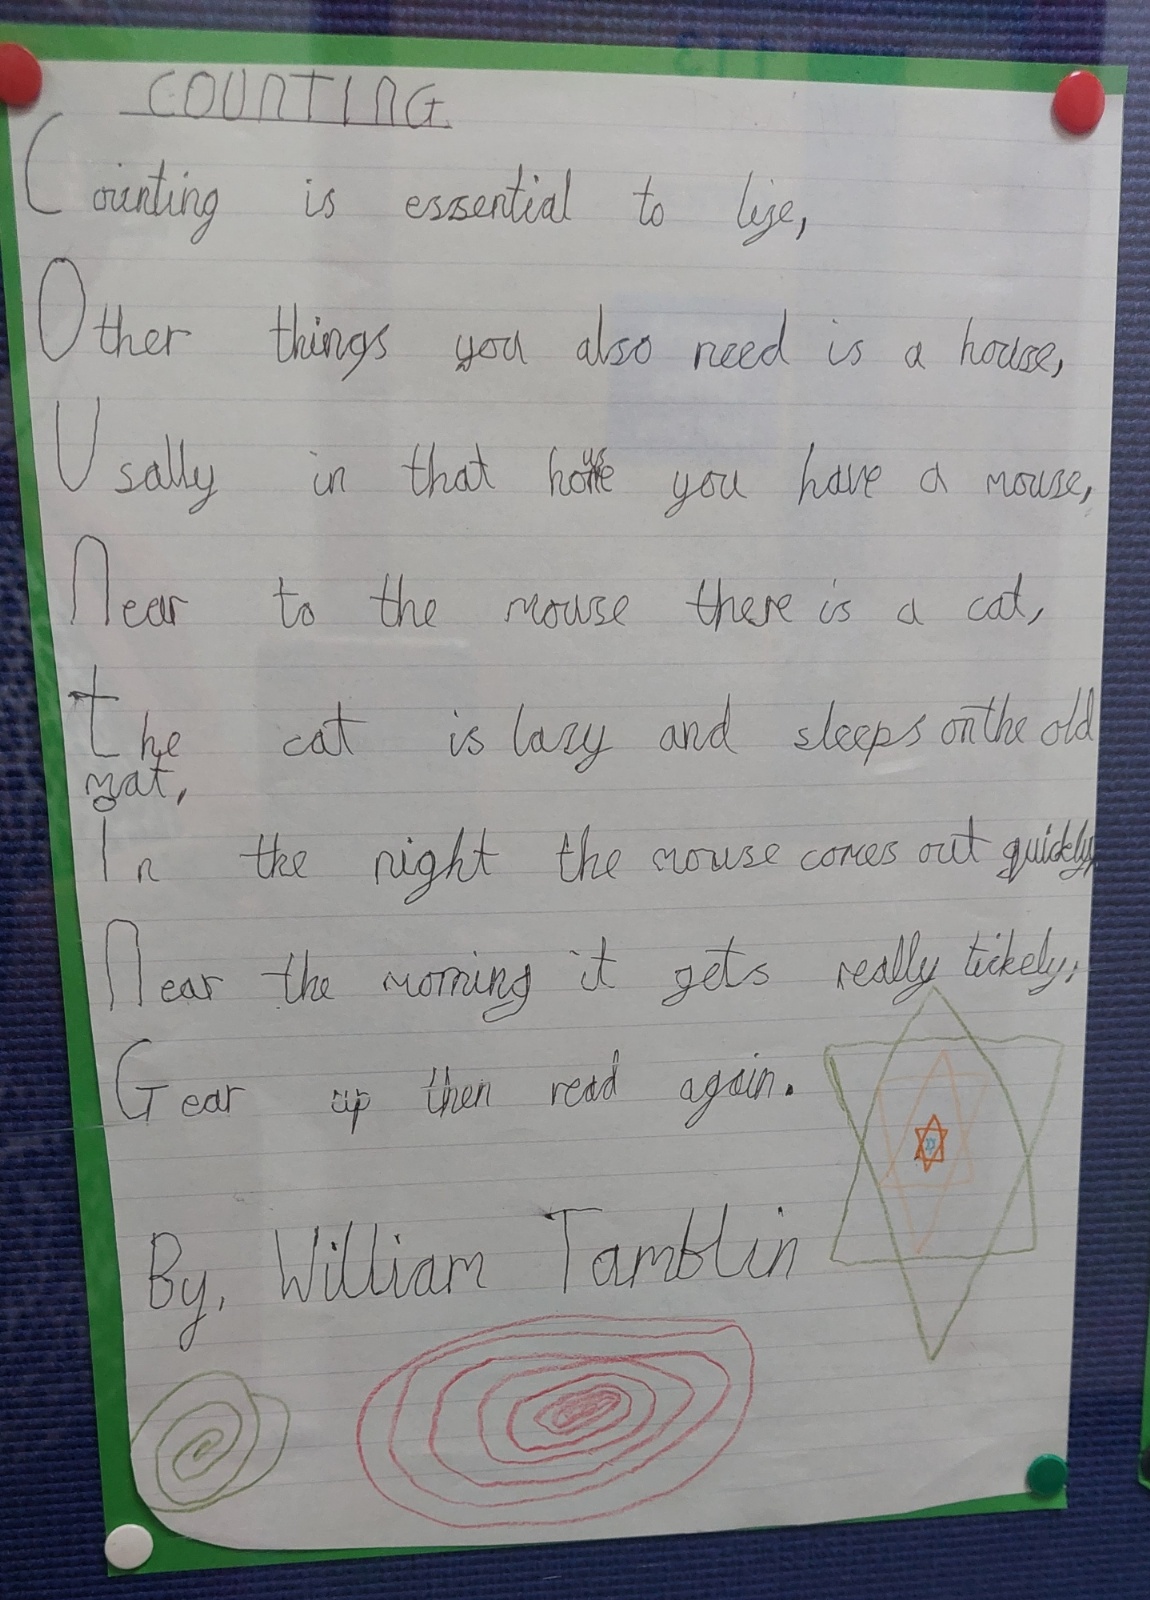 COUNTING
Counting is essential to life,
Other things you also need is a house,
Usally in that house you have a mouse,
Near to the mouse there is a cat,
the cat is lazy and sleeps on the old
mat,
In the night the mouse comes out quickly,
Near the morning it gets really tickely,
Gear up then read again.
By, William Tamblin